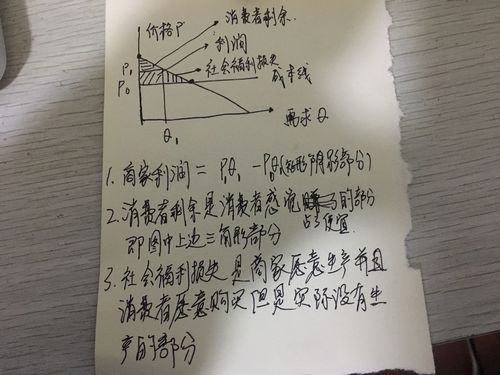 价格P
消费者剩余.
利润
社会福利损失
成本线
P₁
P₀
Q₁
需求Q
1. 商家利润 = P₁Q₁ - P₀Q₁(矩形阴影部分)
2. 消费者剩余是消费者感觉占了便宜的部分
即图中上边三角形部分
3. 社会福利损失是商家愿意生产并且
消费者愿意购买但是实际没有生
产的部分